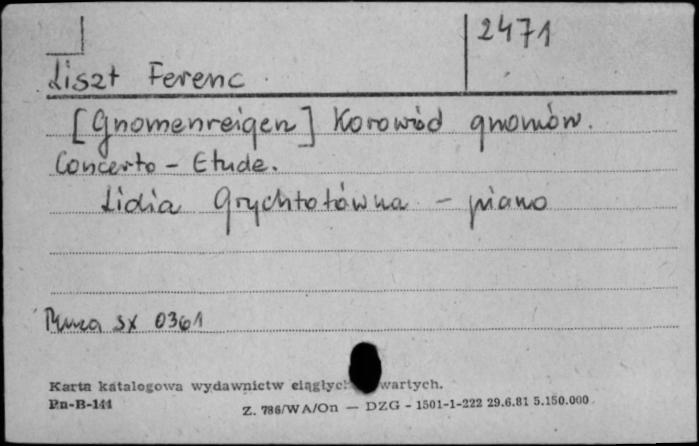 2471
Liszt Ferenc
[Gnomenreigen] Korowód gnomów.
Concerto - Etude.
Lidia Grychtołówna - piano
Muza SX 0361
Karta katalogowa wydawnictw ciągłych wartych.
Pu-B-141
Z. 786/WA/On — DZG - 1501-1-222 29.6.81 5.150.000